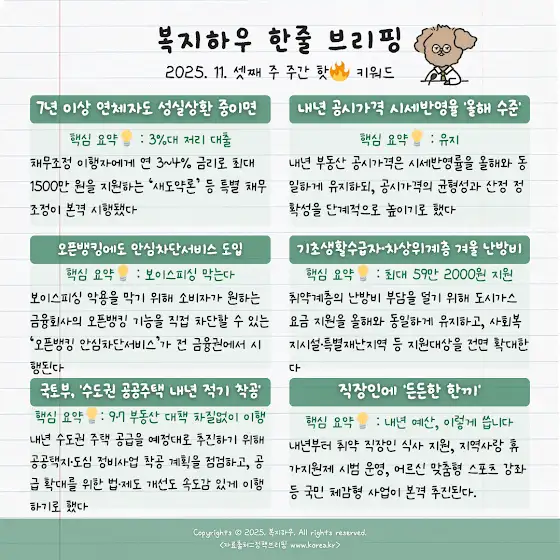 복지하우 한줄 브리핑
2025. 11. 셋째 주 주간 핫🔥 키워드
7년 이상 연체자도 성실상환 중이면
핵심 요약💡 : 3%대 저리 대출
채무조정 이행자에게 연 3~4% 금리로 최대
1500만 원을 지원하는 '새도약론' 등 특별 채무
조정이 본격 시행됐다
내년 공시가격 시세반영율 '올해 수준'
핵심 요약💡 : 유지
내년 부동산 공시가격은 시세반영률을 올해와 동
일하게 유지하되, 공시가격의 균형성과 산정 정
확성을 단계적으로 높이기로 했다
오픈뱅킹에도 안심차단서비스 도입
핵심 요약💡 : 보이스피싱 막는다
보이스피싱 악용을 막기 위해 소비자가 원하는
금융회사의 오픈뱅킹 기능을 직접 차단할 수 있는
'오픈뱅킹 안심차단서비스'가 전 금융권에서 시
행된다
기초생활수급자·차상위계층 겨울 난방비
핵심 요약💡 : 최대 59만 2000원 지원
취약계층의 난방비 부담을 덜기 위해 도시가스
요금 지원을 올해와 동일하게 유지하고, 사회복
지시설·특별재난지역 등 지원대상을 전면 확대한
다
국토부, '수도권 공공주택 내년 적기 착공'
핵심 요약💡 : 9·7 부동산 대책 차질없이 이행
내년 수도권 주택 공급을 예정대로 추진하기 위해
공공택지·도심 정비사업 착공 계획을 점검하고, 공
급 확대를 위한 법·제도 개선도 속도감 있게 이행
하기로 했다
직장인에 '든든한 한끼'
핵심 요약💡 : 내년 예산, 이렇게 씁니다
내년부터 취약 직장인 식사 지원, 지역사랑 휴
가지원제 시범 운영, 어르신 맞춤형 스포츠 강좌
등 국민 체감형 사업이 본격 추진된다.
Copyrights © 2025. 복지하우. All rights reserved.
<자료출처=정책브리핑 www.korea.kr>